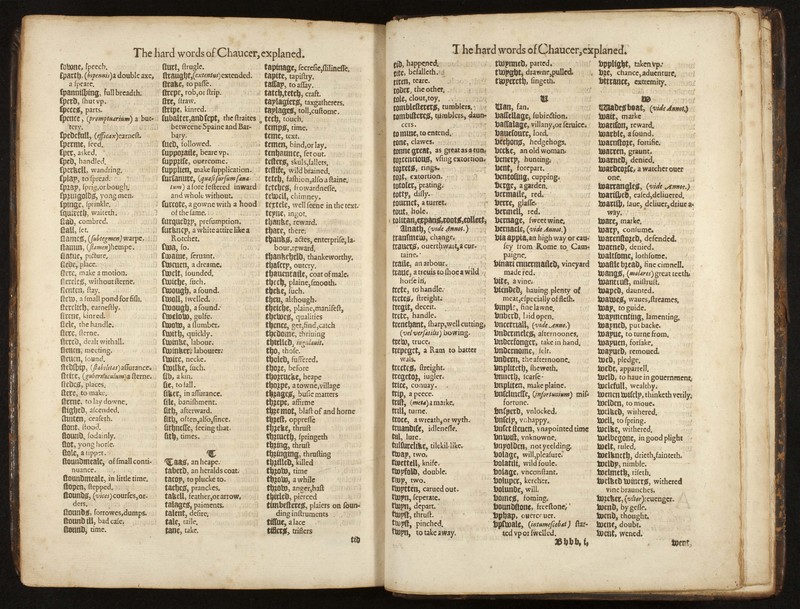 The hard words of Chaucer, explaned.
sowne, speech.
sparth, (bipennis) a double axe,
a speare.
spannishing, full breadth.
sperd, shut vp.
spices, parts.
spence, (promptuarium) a but-
tery.
spedefull, (efficax) earnest.
sperme, seed.
sper, asked.
sped, handled.
sperkell, wandring.
splay, to spread.
spray, sprig, or bough,
springolds, yong men.
springe, sprinkle.
squireth, waiteth.
stad, combred.
stall, set.
stames, (subtegmen) warpe.
stamin, (stamen) hempe.
statue, picture,
stede, place.
stere, make a motion.
stereles, without sterne.
stenten, stay.
stew, a small pond for fish.
sterelich, earnestly.
sterne, kinred.
stele, the handle.
stere, sterne.
stered, dealt withall.
steuen, meeting.
steuen, sound,
stedship, (stabilitas) assurance.
steire, (gubernaculum) a sterne.
stedes, places,
stere, to make.
sterne, to lay downe,
stighed, ascended.
stinten, ceaseth.
stont. stood.
stound, sodainly.
stot, yong horse.
stole, a tippet.
stoundmeale, of small conti-
nuance.
stoundmeale, in little time.
stopen, stepped,
stounds, (vices) courses, or-
ders.
stounds, sorrowes, dumps.
stound ill, bad case,
stound, time.
sturt, strugle.
straught, (extentus) extended.
strake, to passe.
strepe, rob, or strip.
stre, straw.
stripe, kinred.
subalter, and sept, the straites
betweene Spaine and Bar-
bary.
sued, followed.
suppoaile, beare vp.
supprise, ouercome.
supplien, make supplication.
sursanure, (quasi sursum sana-
tum) a sore festered inward
and whole without.
surcote, a gowne with a hood
of the same.
surquedry, presumption.
surkney, a white attire like a
Rotchet.
swa, so.
swaine, seruant.
sweuen, a dreame.
swelt, sounded,
swiche, such.
swough, a sound.
swoll, swelled.
swough, a sound.
swelow, gulfe.
swow, a slumber.
swith, quickly.
swinke, labour.
swinker, labourer
swire, necke.
swilke, such.
sib, a kin.
sie, to fall.
siker, in assurance.
sile, banishment.
sith, afterward.
sith, often, also, since.
sithnesse, seeing that.
sith, times.
T
Taas, an heape.
taberd, an heralds coat.
tacey, to plucke to.
taches, pranckes.
takell, feather, or arrow.
talages, paiments.
talent, desire,
tale, taille,
tane, take,
tapinage, secresie, slilinesse.
tapite, tapistry.
tassay, to assay.
tatch, tetch, craft.
taylagiers, taxgatherers.
taylages, toll, custome.
tech, touch.
temps, time.
tene, text.
temen, bind, or lay.
tenhaunce, set out.
testers, skuls, sallets,
testife, wild brained,
tetch, fashion, also a staine.
tetches, frowardnesse,
tewell, chimney.
textele, well seene in the text.
teyne, ingot,
thanke, reward.
thare, there.
thanks, actes, enterprise, la-
bour, reward,
thankehild, thankeworthy.
thastry, outery.
thauentaile, coat of male.
theth, plaine, smooth.
theke, such.
then, although.
theiche, plaine, manifest,
thewes, qualities
thence, get, find, catch
thedome, thriuing
thirlled, iugulauit.
tho, those.
tholed, suffered.
thore, before
thornicke, heape
thorpe, a towne, village
thrages, busie matters
threpe, affirme
thre mot, blast of and horne
threst, oppresse
threke, thrust
thrucch, springeth
thring, thrust
thringing, thrusting
thrilled, killed
throw, time
throw, a while
throw, anger, hast
thirled, pierced
timbesteres, plaiers on soun-
ding instruments
tissue, a lace
tissers, triflers
tid
The hard words of Chaucer, explaned.
tid, happened,
tite. befalleth.
titen, teare.
toder, the other,
tole, clout, toy,
tombesteres, tumblers.
tombisteres, tumblers, daun-
cers.
to mine, to entend,
tone, clawes.
tonne great, as great as a tun,
torcencious, vsing extortion.
torrets, rings.
tort, extortion.
totoler, prating.
totty, dilly.
tournet, a turret.
tout, hole.
Alnath, (vide Annot.)
transmew, change.
trauers, ouerthwart, a cur-
taine.
traise, an arbour.
traue, a treuis to shoe a wild
horse in,
trete, to handle.
tretes, streight.
treget, deceit.
trete, handle.
trenchant, sharp, well cutting,
(vel versatilis) bowing.
trew, truce,
trepeget, a Ram to batter
wals.
tretles, streight.
tregetor, iugler.
trice, conuay.
trip, a peece.
trist, (meta) a marke.
trill, turne.
troce, a wreath, or wyth.
truandise, idlenesse.
tul, lure.
tulsurelike, tilekil-like.
tway, two.
twettell, knife.
twyfold, double.
twy, two.
twyten, carued out.
twyn, seperate.
twyn, depart.
twyst, thrust.
twyst, pinched,
twyn, to take away.
twynned, parted.
twyght, drawne, pulled.
twyreth, singeth.
V
Van, fan.
vassellage, subiection.
vassalage, villany, or seruice.
vauesoure, lord.
vechons, hedgehogs,
vecke, an old woman.
venery, hunting,
vent, forepart.
ventosing, cupping.
verge, a garden.
vermaile, red.
verre, glasse.
vermell, red.
vernage, sweet wine,
vernacle, (vide Annot.)
via appia, an high way or cau-
sey from Rome to Cam-
paigne.
vinari cinnermailed, vineyard
made red.
vite, a vine.
viended, hauing plenty of
meat, especially of flesh.
vinple, fine lawne,
vnbred, laid open,
vncertraill, (vide Annot.)
vndermeles, afternoones.
vndersonger, take in hand,
vndernome, felt.
vndern, the afternoone,
vnplieth, sheweth.
vnneth, scarse
vnpliten, make plaine.
vnselinesse, (infortunium) mis-
fortune.
vnsperd, vnlocked.
vnsely, vnhappy.
vnset steuen, vnapointed time
vnwist, vnknowne,
vnyolden, not yeelding,
volage, will, pleasure.
volatil, wild foule.
volage, vnconstant.
voluper, kercher.
volunde, will.
vomes, foming.
voundstone, freestone,
vphap, ouercouer.
vpswale, (intumescebat) sta-
ted vp or swelled.
vpplight, taken vp.
vre, chance, aduenture,
vttrance, extremity.
W
Wades boat, (vide Annot.)
wait, marke
warison, reward,
warble, a sound.
warnstore, fortifie.
warren, graunt.
warned, denied,
wardcorse, a watcher ouer
one.
warrangles, (vide Annot.)
warished, eased, deliuered,
warish, saue, deliuer, driue a-
way.
ware, marke.
wary, consume.
warenstored, defended.
warned, denied.
walssome, lothsome.
wastle bread, fine cimnell.
wangs, (molares) great teeth,
wantrust, mistrust.
waped, daunted.
wawes, waues, streames,
way, to guide.
waymenting, lamenting,
wayned, put backe.
wayue, to turne from,
wayuen, forsake,
wayued, remooued.
wed, pledge,
wede, apparrell,
weld, to haue in gouernment,
welefull, wealthy.
wenen wisely, thinketh verily,
welden, to moue.
welked, withered,
well, to spring,
welke, withered,
welbegone, in good plight
welt, ruled,
welkneth, drieth, fainteth.
weldy, nimble.
welmeth, riseth,
welked wines, withered
vine braunches.
wreker, (ultor) reuenger.
wend, by gesse.
wend, thought.
wene, doubt.
went, wened.
Bbbb, i,
went,